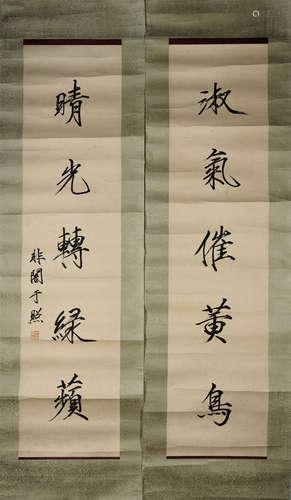 淑氣催黃鳥
晴光轉綠蘋
非闇于照